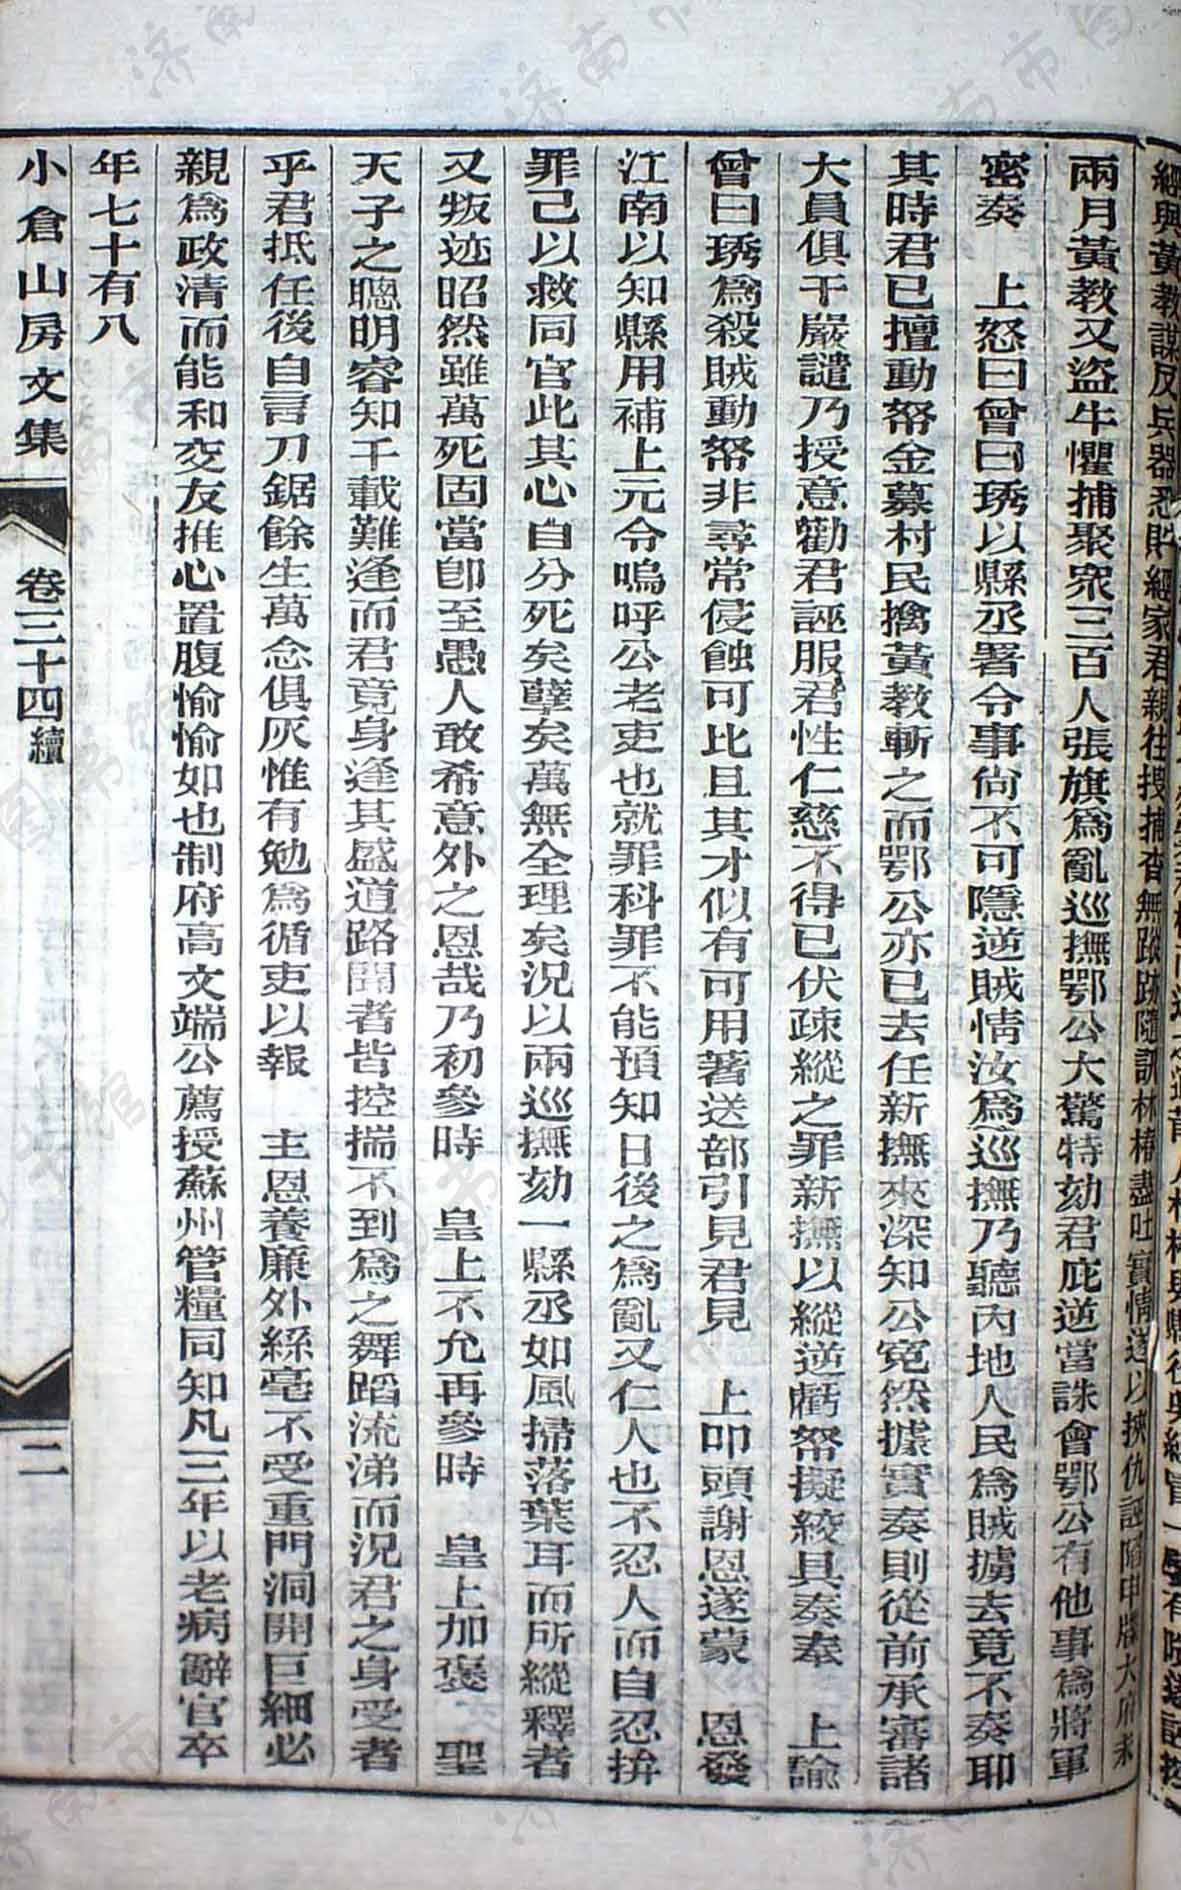 經與黃教謀反兵器悉貯經家君親往搜捕杳無蹤跡隨訊林椿盡吐實情遂以挾仇誣陷申牒大府未
兩月黃教又盜牛懼捕聚衆三百人張旗爲亂巡撫鄂公大驚特劾君庇逆當誅會鄂公有他事爲將軍
密奏　上怒曰曾曰琇以縣丞署令事尙不可隱逆賊情汝爲巡撫乃聽內地人民爲賊擄去竟不奏耶
其時君已擅動帑金募村民擒黃教斬之而鄂公亦已去任新撫來深知公冤然據實奏則從前承審諸
大員俱干嚴譴乃授意勸君誣服君性仁慈不得已伏疎縱之罪新撫以縱逆虧帑擬絞具奏奉　上諭
曾曰琇爲殺賊動帑非尋常侵蝕可比且其才似有可用著送部引見君見　上叩頭謝恩遂蒙　恩發
江南以知縣用補上元令嗚呼公老吏也就罪科罪不能預知日後之爲亂又仁人也不忍人而自忍拚
罪己以救同官此其心自分死矣孽矣萬無全理矣況以兩巡撫劾一縣丞如風掃落葉耳而所縱釋者
又叛迹昭然雖萬死固當卽至愚人敢希意外之恩哉乃初參時　皇上不允再參時　皇上加褒　聖
天子之聰明睿知千載難逢而君竟身逢其盛道路聞者皆控揣不到爲之舞蹈流涕而況君之身受者
乎君抵任後自言刀鋸餘生萬念俱灰惟有勉爲循吏以報　主恩養廉外絲毫不受重門洞開巨細必
親爲政清而能和交友推心置腹愉愉如也制府高文端公薦授蘇州管糧同知凡三年以老病辭官卒
年七十有八
小倉山房文集　卷三十四續　二